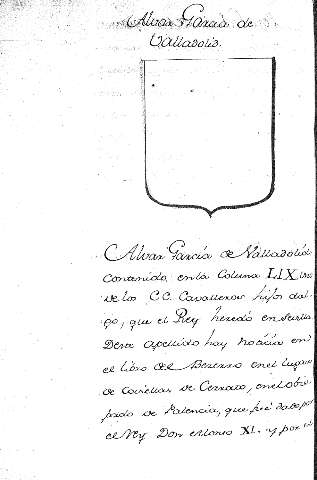 Alvar Garcia de
Valladolid.
Alvar Garcia de Valladolid
contenido en la Coluna LIX
de los CC. Cavalleros hijos dal-
go, que el Rey heredó en Sevilla
Deste apellido hay noticia en
el libro del Bezerro en el lugar
de Covielias de Cerrato, en el obis-
pado de Palencia, que fué dado por
el Rey Don Alonso XI. y por